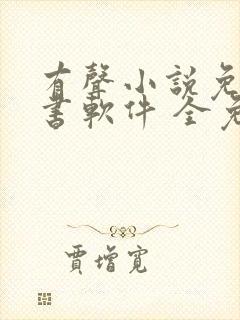 有聲小説免
書軟件 全免
賈增寬